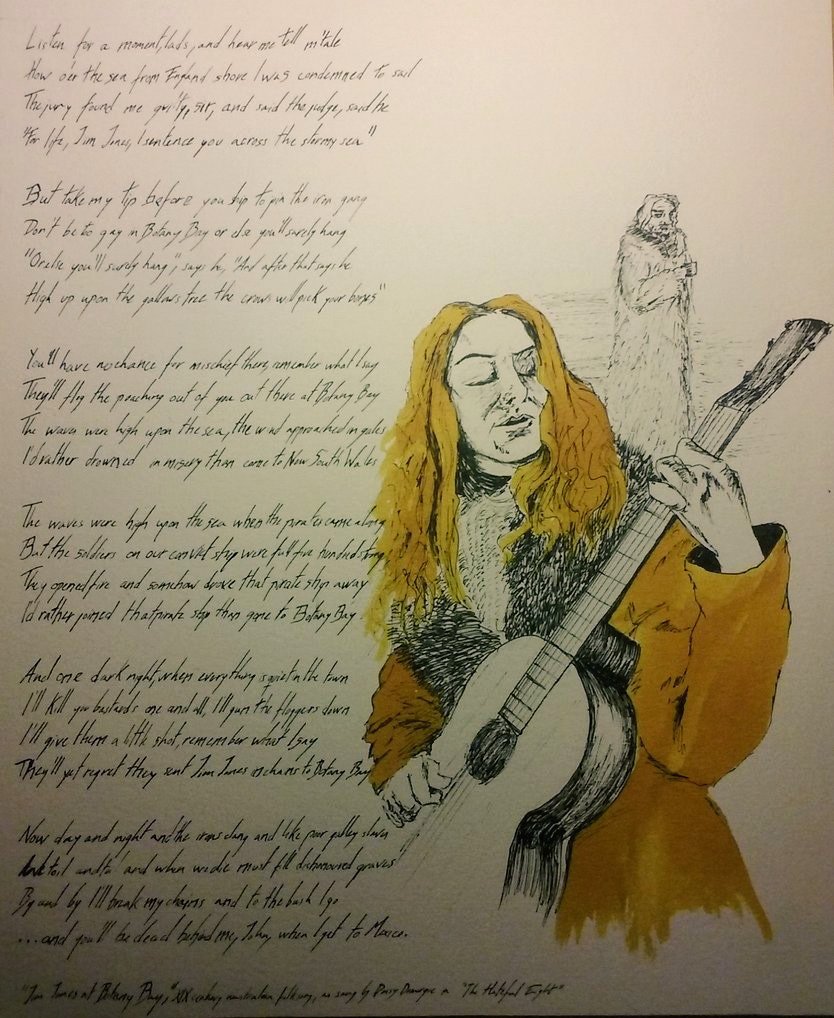 Listen for a moment, lads, and hear me tell m'tale
How o'er the sea from England shore I was condemned to sail
The jury found me guilty, sir, and said the judge, said he
"For life, Jim Jones, I sentence you across the stormy sea"
But take my tip before you ship to join the iron gang
Don't be too gay in Botany Bay or else you'll surely hang
"Or else you'll surely hang", says he, "And after that says he
High up upon the gallows tree the crows will pick your bones"
You'll have no chance for mischief there, remember what I say
They'll flog the poaching out of you out there at Botany Bay
The waves were high upon the sea, the wind approached in gales
I'd rather drowned in misery than come to New South Wales
The waves were high upon the sea when the pirates came along
But the soldiers on our convict ship were full five hundred strong
They opened fire and somehow drove that pirate ship away
I'd rather joined that pirate ship than gone to Botany Bay
And one dark night, when everything is quiet in the town
I'll kill you bastards one and all, I'll gun the floggers down
I'll give them a little shot, remember what I say
They'll yet regret they sent Jim Jones in chains to Botany Bay
Now day and night and the irons clang and like poor galley slaves
toil and and when we die must fill dishonoured graves
By and by I'll break my chains and to the bush I go
...and you'll be dead behind me, John, when I get to Mexico.
"Jim Jones at Botany Bay," XIX century australian folk song, as sung by Daisy Domergue in "The Hateful Eight"